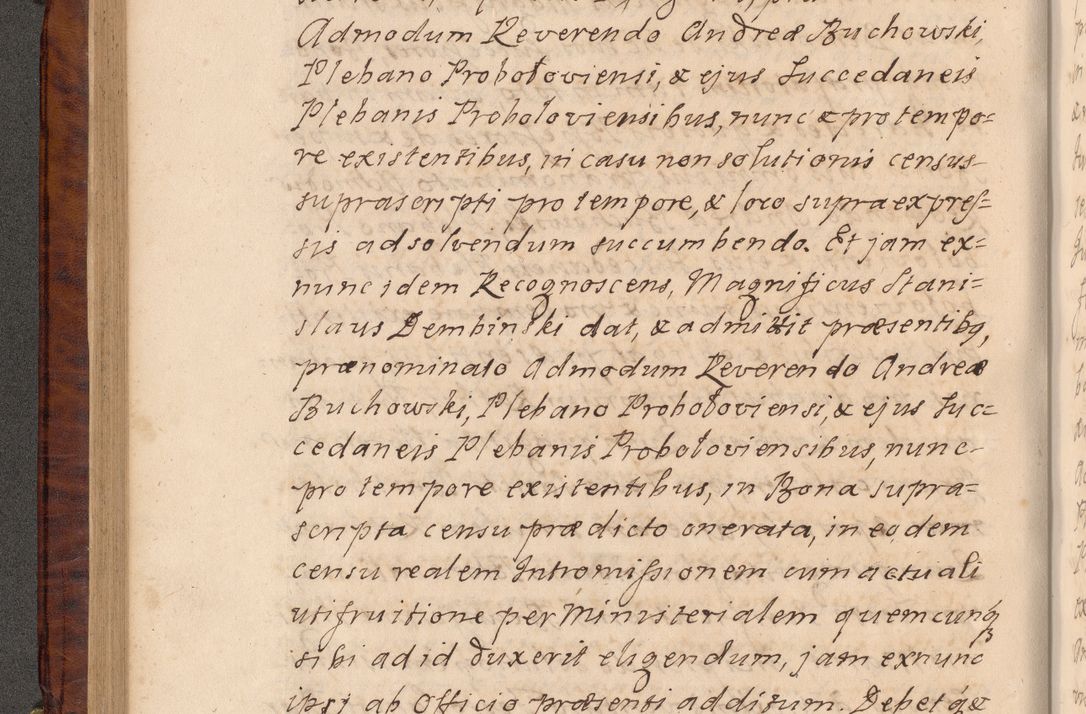 Admodum Reverendo Andreæ Buchowski,
Plebano Probołoviensi, & ejus Succedaneis
Plebanis Probołoviensibus, nunc & pro tempo=
re existentibus, in casu non solutionis census
suprascripti pro tempore, & loco supra expres=
sis adsolvendum succumbendo. Et jam ex=
nunc idem Recognoscens, Magnificus Stani=
slaus Dembinski dat, & admittit præsentibq,
prænominato Admodum Reverendo Andreæ
Buchowski, Plebano Probołoviensi, & ejus Suc=
cedaneis Plebanis Probołoviensibus, nunc
pro tempore existentibus, in Bona supra=
scripta censu prædicto onerata, in eodem
censu realem Intromissionem cum actuali
utifruitione per Ministerialem quemcunq
sibi ad id duxerit eligendum, jam exnunc
ipsi ab Officio præsenti additum. Debet q́æ